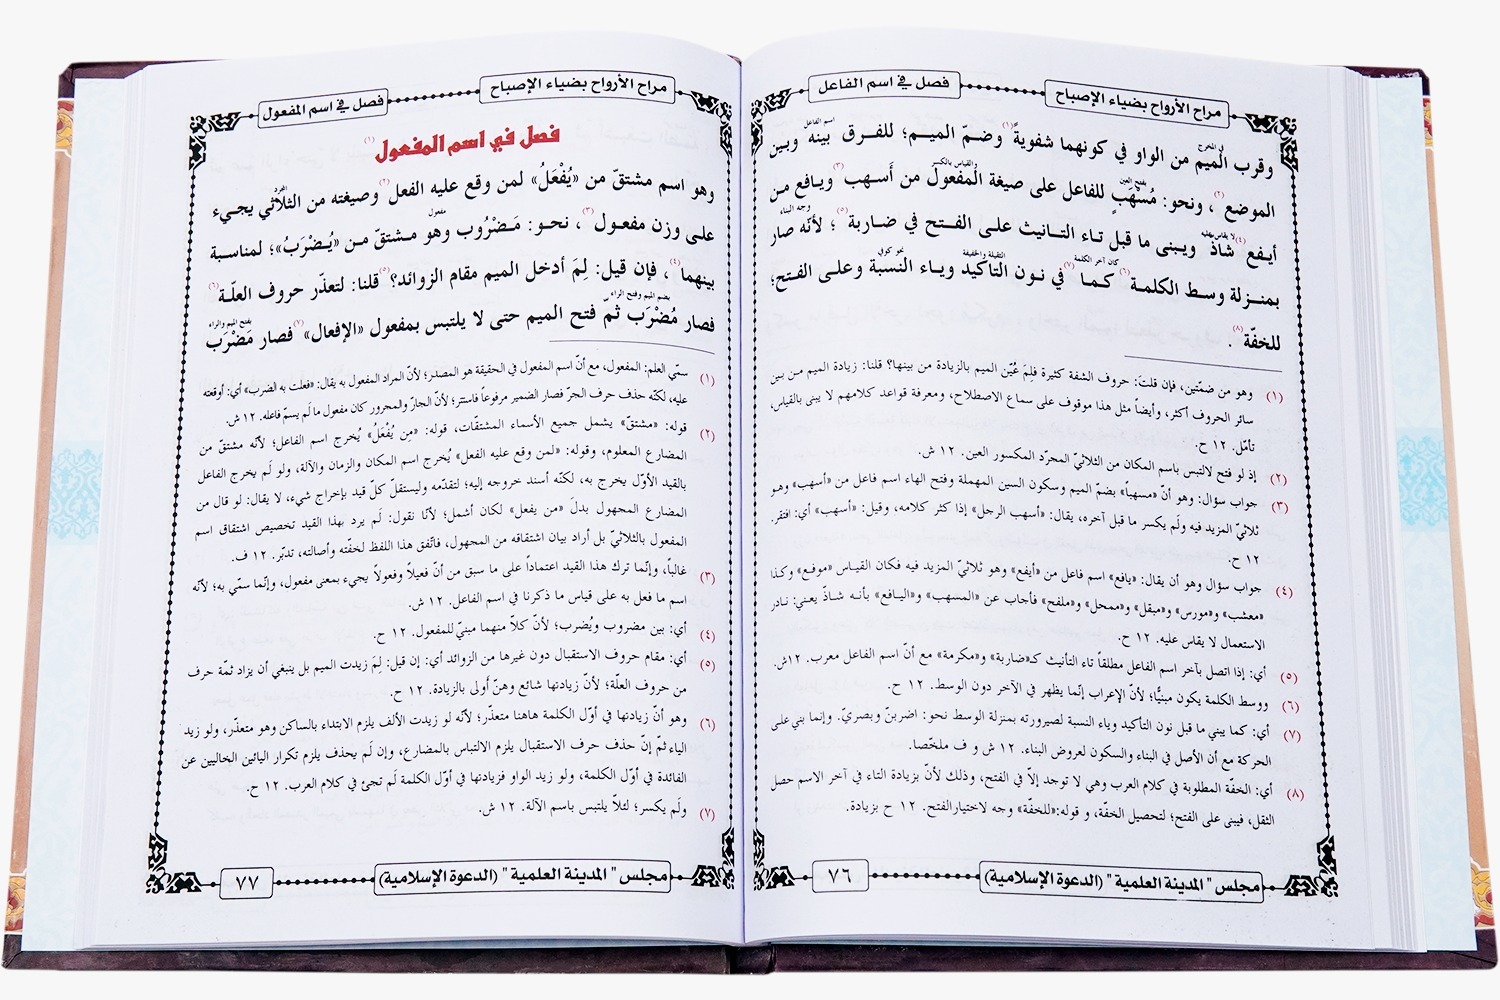 مراح الأرواح بضياء الإصباح
فصل في اسم الفاعل
في المخرج
اسم الفاعل
وقرب الميم من الواو في كونهما شفوية(١) وضمّ الميم؛ للفرق بينه وبين
بفتح العين
والقياس بالكسر
الموضع(٢)، ونحو: مُسهَبٍ للفاعل على صيغة المفعول من أَسهب(٣) ويافع من
لا يقاس عليه
وجه البناء
أيفع(٤) شاذّ ويبنى ما قبل تاء التانيث على الفتح في ضاربة(٥)؛ لأنّه صار
كان آخر الكلمة
الثقيلة والخفيفة
نحو كوفي
بمنزلة وسط الكلمة(٦) كما(٧) في نون التاكيد وياء النسبة وعلى الفتح؛
للخفّة(٨).
(١) وهو من ضمّتين، فإن قلتَ: حروف الشفة كثيرة فلِمَ عُيّن الميم بالزيادة من بينها؟ قلنا: زيادة الميم من بين
سائر الحروف أكثر، وأيضاً مثل هذا موقوف على سماع الاصطلاح، ومعرفة قواعد كلامهم لا يبنى بالقياس،
تأمّل. ١٢ ح.
(٢) إذ لو فتح لالتبس باسم المكان من الثلاثيّ المجرّد المكسور العين. ١٢ ش.
(٣) جواب سؤال: وهو أنّ «مسهباً» بضمّ الميم وسكون السين المهملة وفتح الهاء اسم فاعل من «أسهب» وهو
ثلاثيّ المزيد فيه ولَم يكسر ما قبل آخره، يقال: «أسهب الرجل» إذا كثر كلامه، وقيل: «أسهب» أي: افتقر.
١٢ ح.
(٤) جواب سؤال وهو أن يقال: «يافع» اسم فاعل من «أيفع» وهو ثلاثيّ المزيد فيه فكان القياس «موفع» وكذا
«معشب» و«مورس» و«مبقل» و«ممحل» و«ملفح» فأجاب عن «المسهب» و«اليافع» بأنه شاذّ يعني: نادر
الاستعمال لا يقاس عليه. ١٢ ح.
(٥) أي: إذا اتصل بآخر اسم الفاعل مطلقاً تاء التأنيث كـ«ضاربة» و«مكرمة» مع أنّ اسم الفاعل معرب. ١٢ش.
(٦) ووسط الكلمة يكون مبنيًّا؛ لأنّ الإعراب إنّما يظهر في الآخر دون الوسط. ١٢ ح.
(٧) أي: كما يبني ما قبل نون التأكيد وياء النسبة لصيرورته بمنزلة الوسط نحو: اضربنّ وبصريّ. وإنما بني على
الحركة مع أن الأصل في البناء والسكون لعروض البناء. ١٢ ش و ف ملخّصا.
(٨) أي: الخفّة المطلوبة في كلام العرب وهي لا توجد إلاّ في الفتح، وذلك لأنّ بزيادة التاء في آخر الاسم حصل
الثقل، فيبنى على الفتح؛ لتحصيل الخفّة، و قوله:«للخفّة» وجه لاختيار الفتح. ١٢ ح بزيادة.
مجلس " المدينة العلمية " (الدعوة الإسلامية)
٧٦
مراح الأرواح بضياء الإصباح
فصل في اسم المفعول
فصل في اسم المفعول(١)
المجرّد
وهو اسم مشتقّ من «يُفْعَلُ» لمن وقع عليه الفعل(٢) وصيغته من الثلاثي يجيء
مفعول
على وزن مفعول(٣)، نحو: مَضْرُوب وهو مشتقّ من «يُضْرَبُ»؛ لمناسبة
بينهما(٤)، فإن قيل: لِمَ أدخل الميم مقام الزوائد؟(٥) قلنا: لتعذّر حروف العلّة(٦)
بضم الميم وفتح الراء
بفتح الميم والراء
فصار مُضْرَب ثمّ فتح الميم حتى لا يلتبس بمفعول «الإفعال»(٧) فصار مَضْرَب
(١) سمّي العلم: المفعول، مع أنّ اسم المفعول في الحقيقة هو المصدر؛ لأنّ المراد المفعول به يقال: «فعلت به الضرب» أي: أوقعته
عليه، لكنّه حذف حرف الجرّ فصار الضمير مرفوعاً فاستتر؛ لأنّ الجارّ والمجرور كان مفعول ما لَم يسمّ فاعله. ١٢ ش.
(٢) قوله: «مشتقّ» يشمل جميع الأسماء المشتقّات، قوله: «مِن يُفْعَلُ» يُخرج اسم الفاعل؛ لأنّه مشتقّ من
المضارع المعلوم، وقوله: «لمن وقع عليه الفعل» يُخرج اسم المكان والزمان والآلة، ولو لَم يخرج الفاعل
بالقيد الأوّل يخرج به، لكنّه أسند خروجه إليه؛ لتقدّمه وليستقلّ كلّ قيد بإخراج شيء، لا يقال: لو قال من
المضارع المجهول بدلَ «من يفعل» لكان أشمل؛ لأنّا نقول: لَم يرد بهذا القيد تخصيص اشتقاق اسم
المفعول بالثلاثيّ بل أراد بيان اشتقاقه من المجهول، فاتّفق هذا اللفظ لخفّته وأصالته، تدبّر. ١٢ ف.
(٣) غالباً، وإنّما ترك هذا القيد اعتماداً على ما سبق من أنّ فعيلاً وفعولاً يجيء بمعنى مفعول، وإنّما سمّي به؛ لأنّه
اسم ما فعل به على قياس ما ذكرنا في اسم الفاعل. ١٢ ش.
(٤) أي: بين مضروب ويُضرب؛ لأنّ كلاّ منهما مبنيّ للمفعول. ١٢ ح.
(٥) أي: مقام حروف الاستقبال دون غيرها من الزوائد أي: إن قيل: لِمَ زيدت الميم بل ينبغي أن يزاد ثمّة حرف
من حروف العلّة؛ لأنّ زيادتها شائع وهنّ أَولى بالزيادة. ١٢ ح.
(٦) وهو أنّ زيادتها في أوّل الكلمة هاهنا متعذّر؛ لأنّه لو زيدت الألف يلزم الابتداء بالساكن وهو متعذّر، ولو زيد
الياء ثمّ إنّ حذف حرف الاستقبال يلزم الالتباس بالمضارع، وإن لَم يحذف يلزم تكرار اليائين الخاليين عن
الفائدة في أوّل الكلمة، ولو زيد الواو فزيادتها في أوّل الكلمة لَم تجئ في كلام العرب. ١٢ ح.
(٧) ولَم يكسر؛ لئلاّ يلتبس باسم الآلة. ١٢ ش.
مجلس " المدينة العلمية " (الدعوة الإسلامية)
٧٧